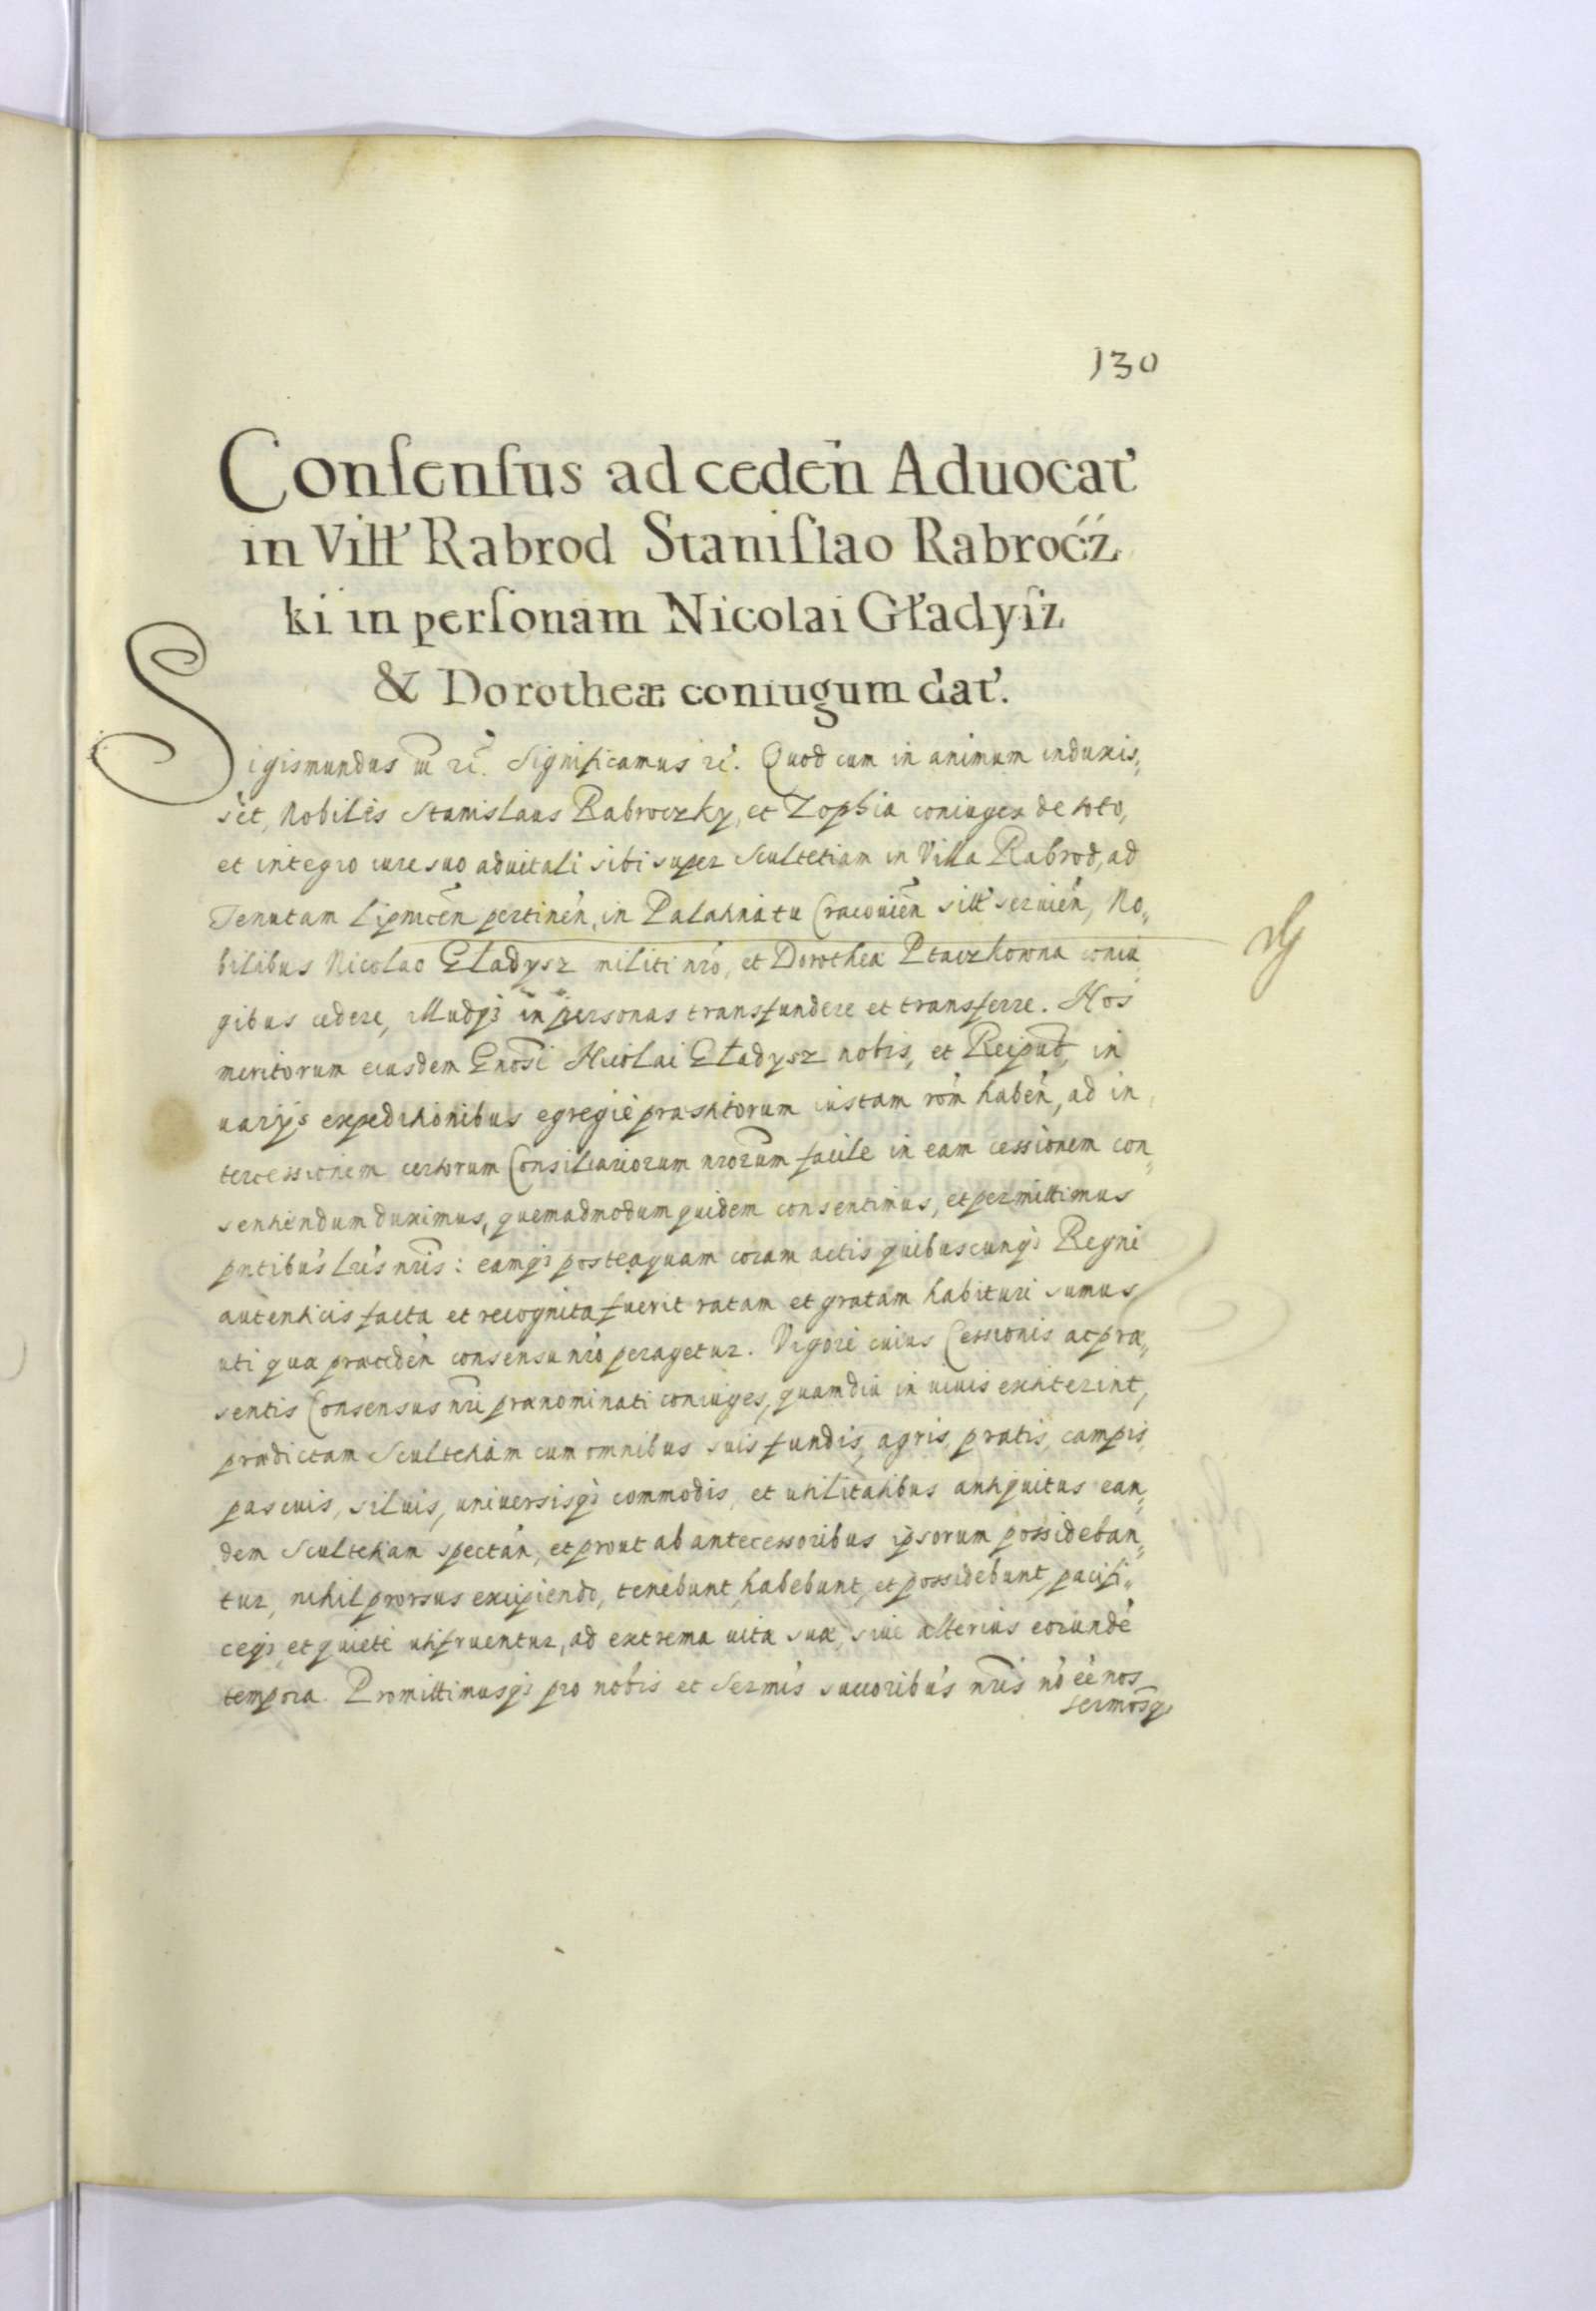 130
Conſenſus ad ceden̄ Aduocat'
in Vill' Rabrod Staniſlao Rabroćz
ki in perſonam Nicolai Gładyſz
& Dorotheæ coniugum dat'.
Sigismundus iii rc̃. Significamus rc̃. Quod cum in animum induxis„
set, Nobiles Stanislaus Rabroczky, et Zophia coniuges de toto,
et integro iure suo aduitali sibi super Scultetiam in Villa Rabrod, ad
Tenutam Lipnicen̄ pertinen̄, in Palatinatu Cracouien̄ sitt' seruien̄, No„
bilibus Nicolao Gładysz militi nrõ, et Dorothea Ptaczkowna coniu
gibus cedere, illudq3 in personas transfundere et transferre. Nos
meritorum eiusdem Gnosi Nicolai Gładysz nobis, et Reipub, in
uarijs expeditionibus egregie præstitorum iustam rõn haben̄, ad in„
tercessionem certorum Consiliariorum nrorum facile in eam cessionem con„
sentiendum duximus, quemadmodum quidem consentimus, et permittimus
pntibus Lris nris: eamq3 posteaquam coram actis quibuscunq3 Regni
autenticis facta et recognita fuerit ratam et gratam habituri sumus
uti quæ præceden̄ consensu nrõ peragetur. Vigore cuius Cessionis ac præ„
sentis Consensus nri prænominati coniuges, quamdiu in uiuis extiterint,
prædictam Scultetiam cum omnibus suis fundis, agris, pratis, campis,
pascuis, siluis, uniuersisq3 commodis, et utilitatibus antiquitus ean„
dem Scultetiam spectan̄, et prout ab antecessoribus ipsorum possideban„
tur, nihil prorsus excipiendo, tenebunt, habebunt, et possidebunt, pacifi„
ceq3 et quiete utifruentur, ad extrema uitæ suæ, siue alterius eorundẽ
tempora. Promittimusq3 pro nobis et Sermis succoribus nris nõ ẽe nos
sermosq3